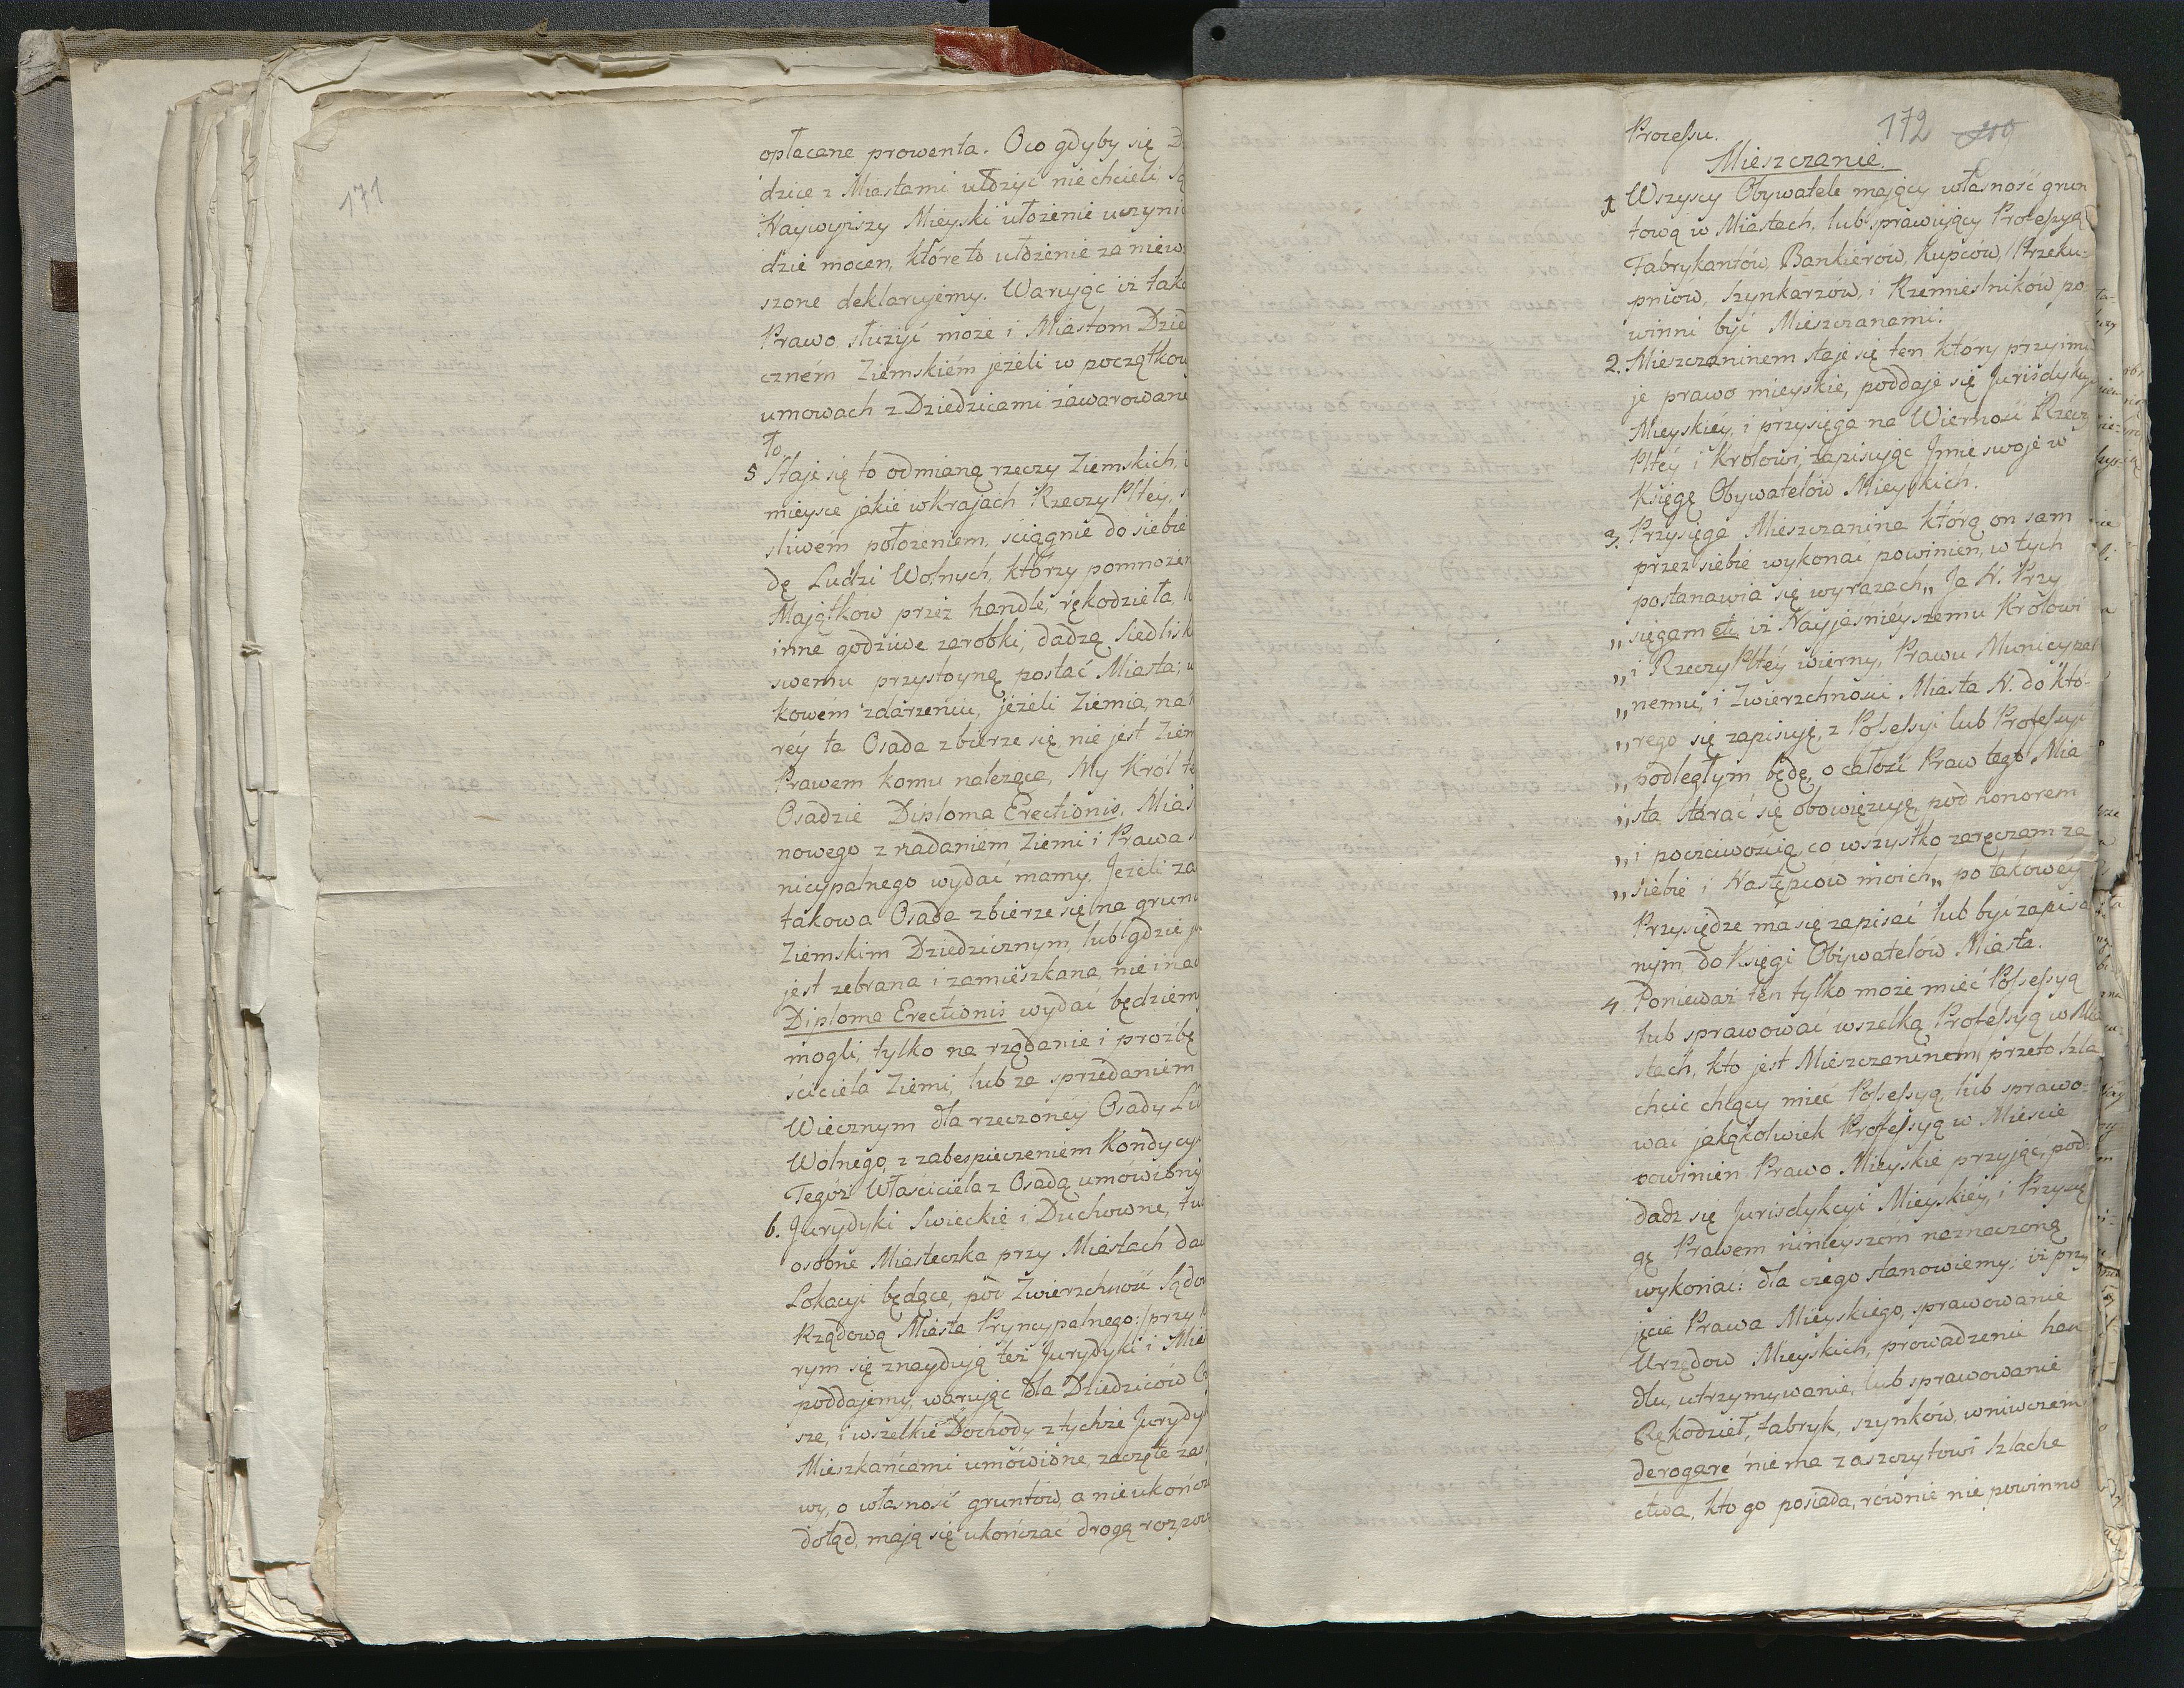 171
opłacane prowenta. Oco gdyby się D
dzice z Miastami ułożyć nie chcieli, Są
Naywyższy Mieyski ułożenie uczynić
dzie mocen, które to ułożenie za niew
szone deklarujemy. Warując iż tako
Prawo służyć może i Miastom Dzied
czném Ziemskiém jeżeli w początkow
umowach z Dziedzicami zawarowane
to
5 Staje się to odmianą rzeczy Ziemskich, i
mieysce jakie w krajach Rzeczy Pltey, s
śliwém położeniem, ściągnie do siebie
dę Ludzi Wolnych, którzy pomnożen
Majątków przez handle, rękodzieła, l
inne godziwe zarobki, dadzą Siedlisk
swemu przystoyną postać Miasta; w
kowem zdarzeniu, jeżeli Ziemia, na k
réy ta Osada zbierze się, nie jest Ziem
Prawem komu należąca, My Król te
Osadzie Diploma Erectionis, Miast
nowego z nadaniem Ziemi i Prawa
nicypalnego wydać mamy. Jeżeli za
takowa Osada zbierze się na grunc
Ziemskim Dziedzicznym, lub gdzie ju
jest zebrana i zamieszkana, nie inac
Diploma Erectionis wydać będziem
mogli, tylko na rządanie i prozbę
ściciela Ziemi, lub za sprzedaniem
Wiecznym dla rzeczonéy Osady Lu
Wolnego, z zabespieczeniem Kondycy
Tegóż Własciciela z Osadą umówiony
6. Jurydyki Swieckie i Duchowne, tu
osobne Miasteczka przy Miastach daw
Lokacyi będące, pod Zwierzchność Sądow
Rządową Miasta Pryncypalnego:/przy k
rym się znaydują też Jurydyki i Mia
poddajemy, warując dla Dziedziców C
sze, i wszelkie Dochody z tychże Jurydy
Mieszkańcami umówione, zaczęte zas
wy, o własność gruntów, a nieukończo
dotąd, mają się ukończać drogą rozpocz
172
Processu.
Mieszczanie.
1 Wszyscy Obywatele mający własność grun
tową w Miastach, lub sprawujący Professyą
Fabrykantów, Bankierów, Kupców, Przeku-
pniów, Szynkarzów, i Rzemieslników po
winni być Mieszczanami.
2. Mieszczaninem staje się ten który przyimu
je prawo mieyskie, poddaje się Jurisdykcyi
Mieyskiéy, i przysięga na Wierność Rzeczy
Pltéy i Krolowi, zapisując Jmie swoje w
Księgę Obywatelów Mieyskich.
3. Przysięga Mieszczanina którą on sam
przez siebie wykonać powinien, w tych
postanawia się wyrazach„ Ja N. Przy
„sięgam etc. iż Nayjaśnieyszemu Królowi
„i Rzeczy Pltéy wierny, Prawu Municypal
„nemu, i Zwierzchności Miasta N. do któ-
„rego się zapisuję, z Possessyi lub Professyi
„podległym będę, o całość Praw tego Mia
„sta starać się obowięzuję, pod honorem
„i poczciwością, co wszystko zaręczam za
„siebie i Następców moich„ po takowéy
Przysiędze ma się zapisać lub być zapisa
nym do Księgi Obywatelów Miasta.
4. Ponieważ ten tylko może mieć Possessyą
lub sprawować wszelką Professyą w Mia
stach, kto jest Mieszczaninem, przeto Szla
chcic chcący mieć Possessyą, lub sprawo-
wać jakąkolwiek Professyą w Mieście
powinien Prawo Mieyskie przyjąc, pod
dadz się Jurisdykcyi Mieyskiey, i Przysię
gę Prawem ninieyszém naznaczoną
wykonać: dla czego stanowiemy; iż przy
jęcie Prawa Mieyskiego, sprawowanie
Urzędow Mieyskich, prowadzenie han
dlu, utrzymywanie, lub sprawowanie
Rękodzieł, fabryk, szynków, w niwczém
derogare nie ma zaszczytowi Szlache
ctwa, kto go posiada, równie nie powinno